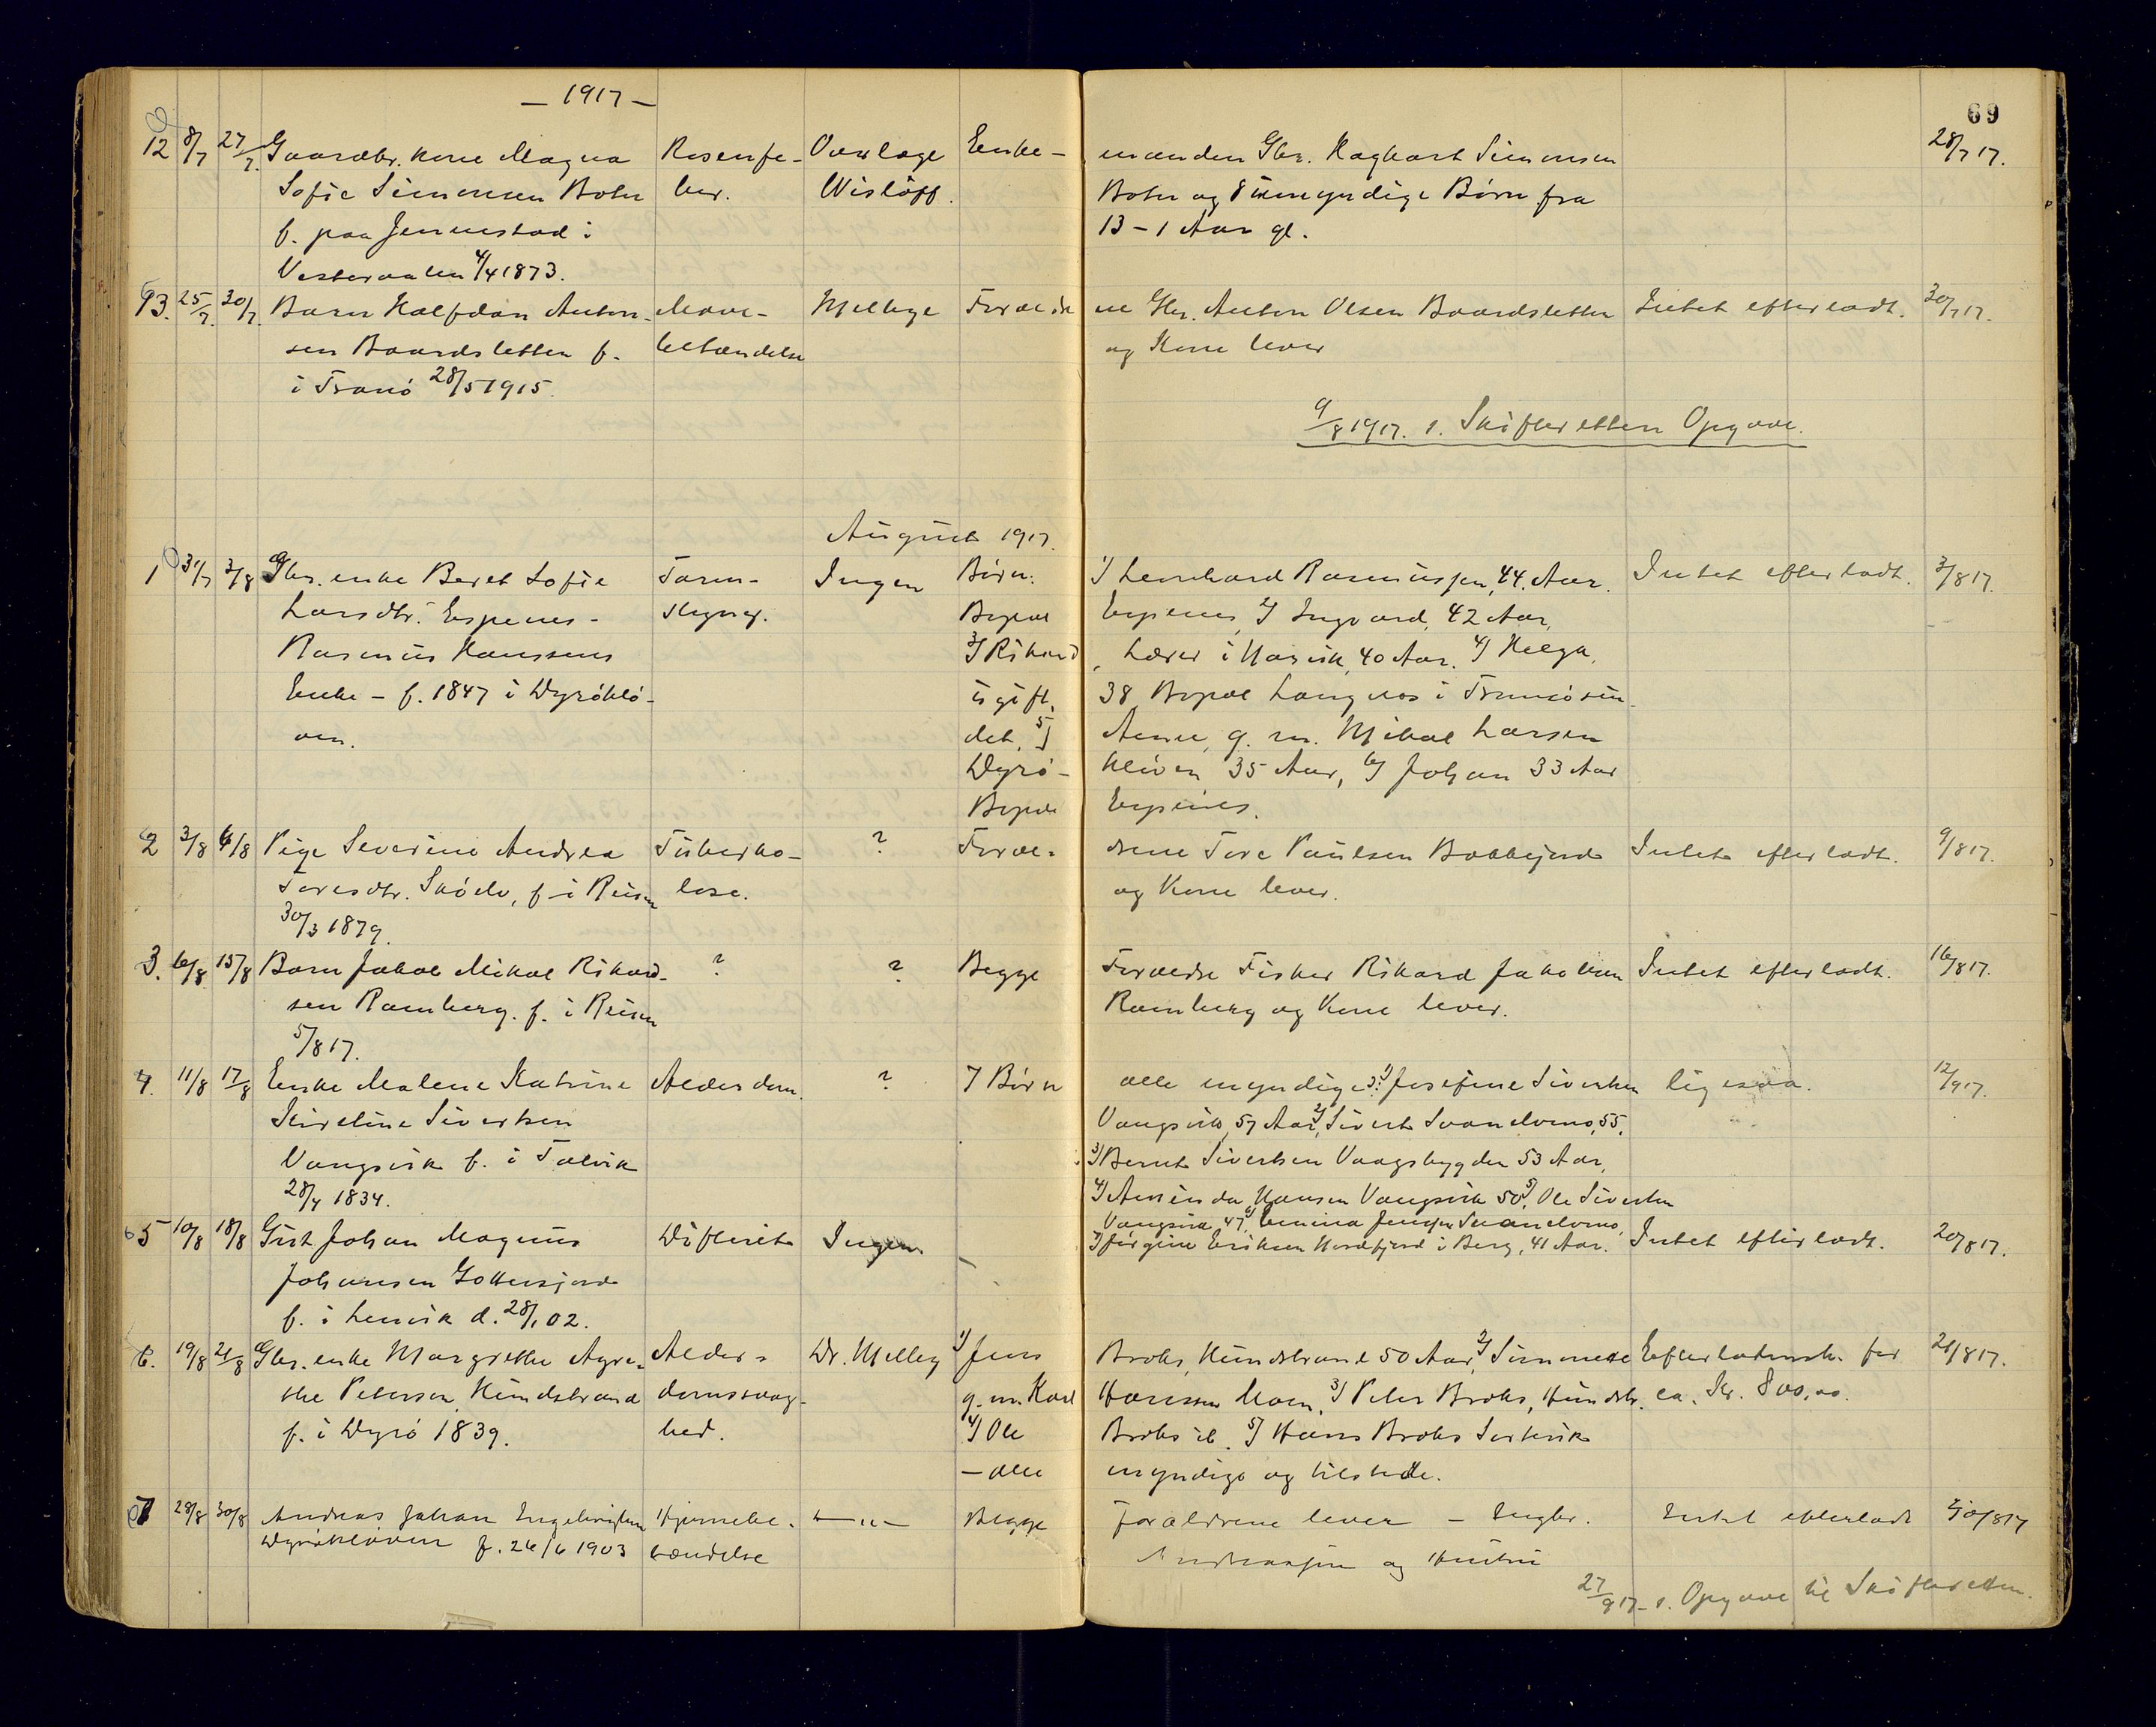 — 1917 —
69
12 8/7 27/7. Gaardbr. kone Magna Rosenfe- Overlæge Enke- manden Gbr. Hagbart Simonsen 28/7 17.
Sofie Simonsen Botn ber. Wisløff. Botn og 8 umyndige Børn fra
f. paa Jennestad i 13 – 1 Aar gl.
Vesteraalen 4/4 1873.
13. 25/7. 30/7. Barn Halfdan Anton- Mave- Mellbye Forældre ne Gbr. Anton Olsen Baardsletten Intet efterladt. 30/7 17.
sen Baardsletten f. betændelse og Kone lever
i Tranø 28/5 1915.
9/8 1917. s. Skifteretten Opgave.
August 1917.
1 31/7 3/8 Gbr. enke Beret Sofie Tarm- Ingen Børn: 1/ Leonhard Rasmussen, 44. Aar. Intet efterladt. 3/8 17.
Larsdtr. Espenes- slyng. Bopæl Espenes, 2/ Ingvard, 42 Aar,
Rasmus Hanssens 3/ Rikard, Lærer i Narvik, 40 Aar. 4/ Helga,
Enke – f. 1847 i Dyrøklø- ugift, 38 Bopæl Langnes i Tromsøsun-
ven. det, 5/ Anne, g. m. Mikal Larsen
Dyrø- kløven 35 Aar, 6/ Johan 33 Aar
Bopæl Espenes.
2 3/8 4/8 Pige Severine Andrea Tuberko- ? Foræl- drene Tore Paulsen Bakkejord Intet efterladt. 9/8 17.
Toresdtr. Skøelv, f. i Reisen lose. og Kone lever.
30/3 1879.
3. 6/8 15/8 Barn Jakob Mikal Rikard- ? ? Begge Forældre Fisker Rikard Jakobsen Intet efterladt. 16/8 17.
sen Ramberg. f. i Reisen Ramberg og Kone lever.
5/8 17.
4. 11/8 17/8 Enke Malene Katrine Alderdom. ? 7 Børn alle myndige: 1/ Josefine Sivertsen ligesaa. 12/9 17.
Sivertsen
Vangsvik, 57 Aar, 2/ Sivert Svanelvmo, 55,
Vangsvik f. i Talvik 3/ Bernt Sivertsen Vaagsbygden 53 Aar,
28/4 1834. 4/ Hansen Vangsvik 50, 5/ Ole Sivertsen
Vangsvik 47, 6/ Jensen Svanelvmo,
5 10/8 18/8 Gut Johan Magnus Difterit Ingen — 7/ Jørgine Eriksen Nordfjord i Berg, 41 Aar. Intet efterladt. 20/8 17.
Johansen Gottesjord
f. i Lenvik d. 28/1 02.
6. 19/8 21/8 Gbr. enke Margrethe Agre- Alder- Dr. Mellby 1/ Jens Broks, Kundstrand 50 Aar, 2/ Efterladensk. for 21/8 17.
the Petersen Kundstrand domssvag- g. m. Karl Hanssen Moen, 3/ Peter Broks, ca. Kr. 800,00.
f. i Dyrø 1839. hed. 4/ Ole Broks ib. 5/ Hans Broks Sørvik
— alle myndige og tilstede.
7 28/8 30/8 Andreas Johan Ingebrigtsen Hjernebe- —„— Begge Forældrene lever – Ingbr. Intet efterladt 30/8 17
Dyrøkløven f. 26/6 1903 tændelse Andreassen og Hustru
27/9 17 – s. Opgave til Skifteretten.